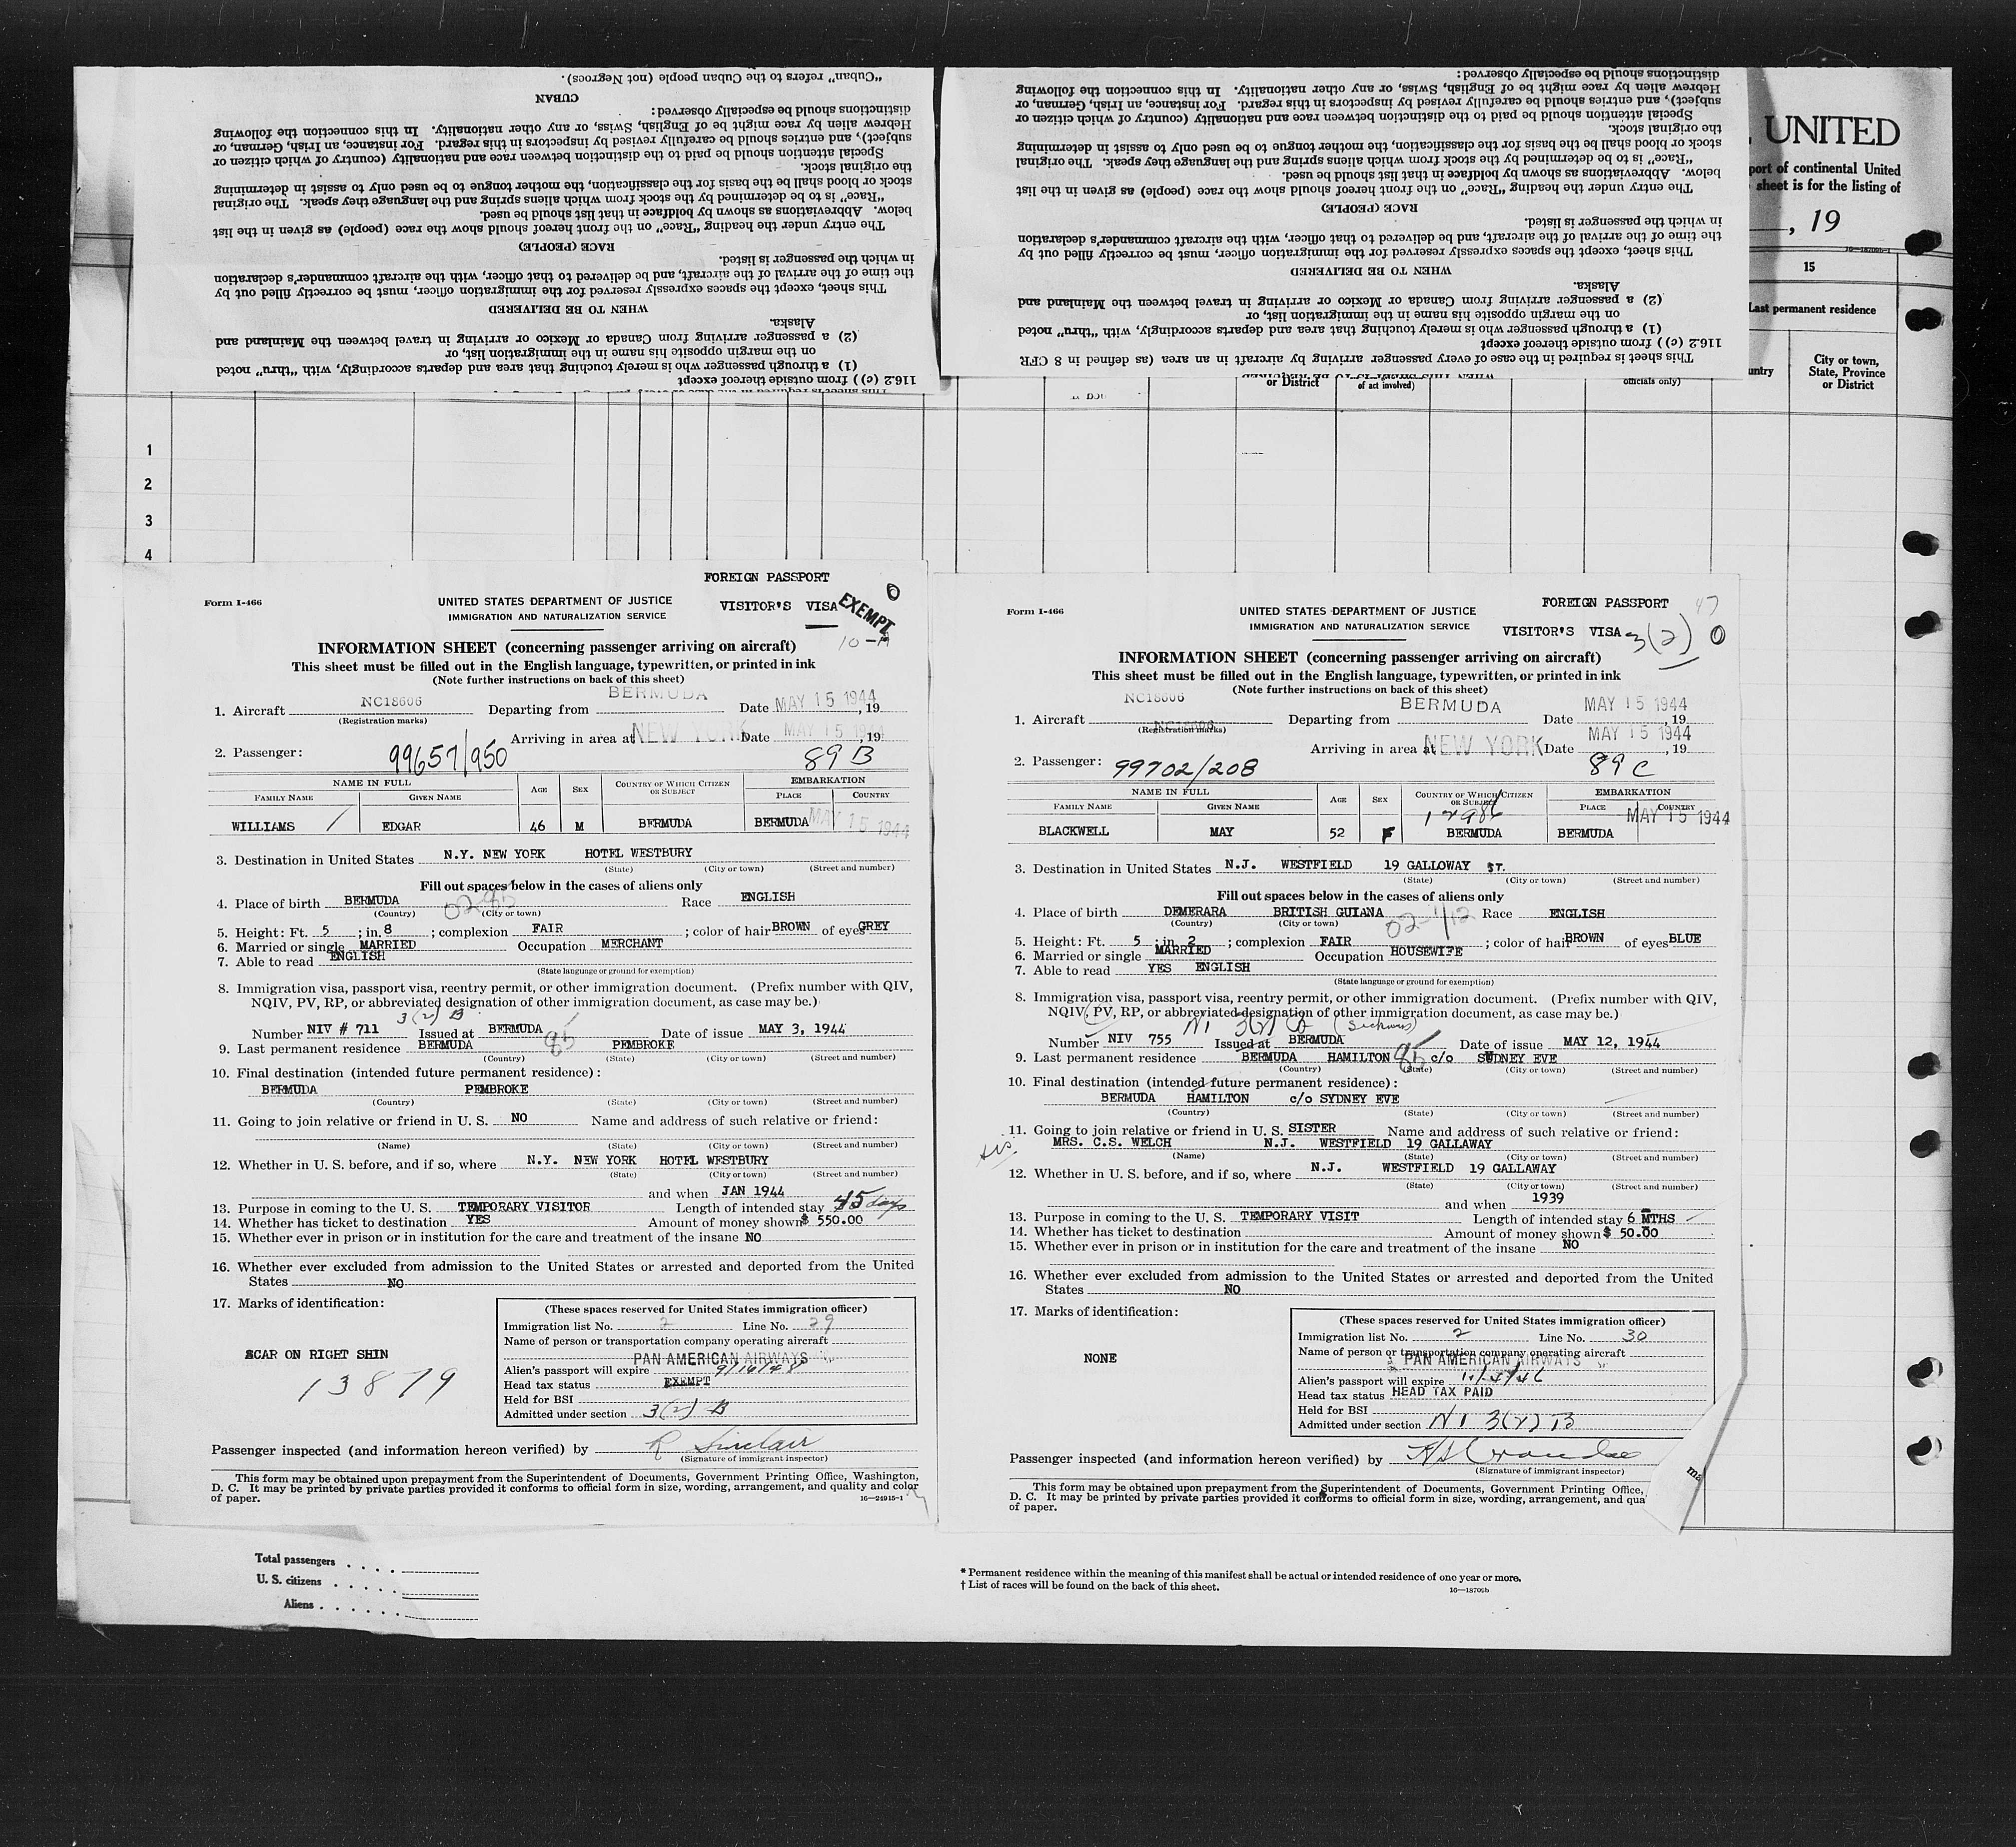 "Cuban" refers to the Cuban people (not Negroes).
CUBAN
distinctions should be especially observed:
Hebrew alien by race might be of English, Swiss, or any other nationality. In this connection the following
subject), and entries should be carefully revised by inspectors in this regard. For instance, an Irish, German, or
Special attention should be paid to the distinction between race and nationality (country of which citizen or
the original stock.
stock or blood shall be the basis for the classification, the mother tongue to be used only to assist in determining
"Race" is to be determined by the stock from which aliens spring and the language they speak. The original
below. Abbreviations as shown by boldface in that list should be used.
The entry under the heading "Race" on the front hereof should show the race (people) as given in the list
RACE (PEOPLE)
in which the passenger is listed.
the time of the arrival of the aircraft, and be delivered to that officer, with the aircraft commander's declaration
This sheet, except the spaces expressly reserved for the immigration officer, must be correctly filled out by
WHEN TO BE DELIVERED
Alaska.
(2) a passenger arriving from Canada or Mexico or arriving in travel between the Mainland and
on the margin opposite his name in the immigration list, or
(1) a through passenger who is merely touching that area and departs accordingly, with "thru" noted
116.2 (c)) from outside thereof except
distinctions should be especially observed:
Hebrew alien by race might be of English, Swiss, or any other nationality. In this connection the following
subject), and entries should be carefully revised by inspectors in this regard. For instance, an Irish, German, or
Special attention should be paid to the distinction between race and nationality (country of which citizen or
the original stock.
stock or blood shall be the basis for the classification, the mother tongue to be used only to assist in determining
"Race" is to be determined by the stock from which aliens spring and the language they speak. The original
below. Abbreviations as shown by boldface in that list should be used.
The entry under the heading "Race" on the front hereof should show the race (people) as given in the list
RACE (PEOPLE)
in which the passenger is listed.
the time of the arrival of the aircraft, and be delivered to that officer, with the aircraft commander's declaration
This sheet, except the spaces expressly reserved for the immigration officer, must be correctly filled out by
WHEN TO BE DELIVERED
Alaska.
(2) a passenger arriving from Canada or Mexico or arriving in travel between the Mainland and
on the margin opposite his name in the immigration list, or
(1) a through passenger who is merely touching that area and departs accordingly, with "thru" noted
116.2 (c)) from outside thereof except
This sheet is required in the case of every passenger arriving by aircraft in an area (as defined in 8 CFR
UNITED
port of continental United
sheet is for the listing of
, 19
16—18709b-1
15
Last permanent residence
City or town,
State, Province
or District
or District
of act involved)
officials only)
1
2
3
4
FOREIGN PASSPORT
Form I-466
UNITED STATES DEPARTMENT OF JUSTICE
IMMIGRATION AND NATURALIZATION SERVICE
VISITOR'S VISA EXEMPT 0
10-A
INFORMATION SHEET (concerning passenger arriving on aircraft)
This sheet must be filled out in the English language, typewritten, or printed in ink
(Note further instructions on back of this sheet)
1. Aircraft NC18606 Departing from BERMUDA Date MAY 15 1944, 19
(Registration marks)
Arriving in area at NEW YORK Date MAY 15 1944, 19
2. Passenger: 99657/950 89 B
NAME IN FULL AGE SEX COUNTRY OF WHICH CITIZEN OR SUBJECT EMBARKATION
FAMILY NAME GIVEN NAME PLACE COUNTRY
WILLIAMS / EDGAR 46 M BERMUDA BERMUDA MAY 15 1944
3. Destination in United States N.Y. NEW YORK HOTEL WESTBURY
(State) (City or town) (Street and number)
Fill out spaces below in the cases of aliens only
4. Place of birth BERMUDA Race ENGLISH
(Country) (City or town)
5. Height: Ft. 5 ; in. 8 ; complexion FAIR ; color of hair BROWN of eyes GREY
6. Married or single MARRIED Occupation MERCHANT
7. Able to read ENGLISH
(State language or ground for exemption)
8. Immigration visa, passport visa, reentry permit, or other immigration document. (Prefix number with QIV,
NQIV, PV, RP, or abbreviated designation of other immigration document, as case may be.)
3(2) B
Number NIV # 711 Issued at BERMUDA Date of issue MAY 3, 1944
9. Last permanent residence BERMUDA 85 PEMBROKE
(Country) (State) (City or town) (Street and number)
10. Final destination (intended future permanent residence):
BERMUDA PEMBROKE
(Country) (State) (City or town) (Street and number)
11. Going to join relative or friend in U. S. NO Name and address of such relative or friend:
(Name) (State) (City or town) (Street and number)
12. Whether in U. S. before, and if so, where N.Y. NEW YORK HOTEL WESTBURY
(State) (City or town) (Street and number)
and when JAN 1944
13. Purpose in coming to the U. S. TEMPORARY VISITOR Length of intended stay 45 days
14. Whether has ticket to destination YES Amount of money shown $ 550.00
15. Whether ever in prison or in institution for the care and treatment of the insane NO
16. Whether ever excluded from admission to the United States or arrested and deported from the United
States NO
17. Marks of identification:
SCAR ON RIGHT SHIN
13879
(These spaces reserved for United States immigration officer)
Immigration list No. 2 Line No. 29
Name of person or transportation company operating aircraft
PAN AMERICAN AIRWAYS
Alien's passport will expire 9/16/48
Head tax status EXEMPT
Held for BSI
Admitted under section 3(2) B
Passenger inspected (and information hereon verified) by R Sinclair
(Signature of immigrant inspector)
This form may be obtained upon prepayment from the Superintendent of Documents, Government Printing Office, Washington,
D. C. It may be printed by private parties provided it conforms to official form in size, wording, arrangement, and quality and color
of paper. 16—24915-1
FOREIGN PASSPORT 47
Form I-466
UNITED STATES DEPARTMENT OF JUSTICE
IMMIGRATION AND NATURALIZATION SERVICE
VISITOR'S VISA 3(2) 0
INFORMATION SHEET (concerning passenger arriving on aircraft)
This sheet must be filled out in the English language, typewritten, or printed in ink
(Note further instructions on back of this sheet)
1. Aircraft NC18606 Departing from BERMUDA Date MAY 15 1944, 19
NC18606
(Registration marks)
Arriving in area at NEW YORK Date MAY 15 1944, 19
2. Passenger: 99702/208 89 C
NAME IN FULL AGE SEX COUNTRY OF WHICH CITIZEN OR SUBJECT EMBARKATION
FAMILY NAME GIVEN NAME PLACE COUNTRY
BLACKWELL MAY 52 F BERMUDA BERMUDA MAY 15 1944
3. Destination in United States N.J. WESTFIELD 19 GALLOWAY ST.
(State) (City or town) (Street and number)
Fill out spaces below in the cases of aliens only
4. Place of birth DEMERARA BRITISH GUIANA Race ENGLISH
(Country) (City or town)
5. Height: Ft. 5 ; in. 2 ; complexion FAIR ; color of hair BROWN of eyes BLUE
6. Married or single MARRIED Occupation HOUSEWIFE
7. Able to read YES ENGLISH
(State language or ground for exemption)
8. Immigration visa, passport visa, reentry permit, or other immigration document. (Prefix number with QIV,
NQIV, PV, RP, or abbreviated designation of other immigration document, as case may be.)
Number NIV 755 Issued at BERMUDA Date of issue MAY 12, 1944
9. Last permanent residence BERMUDA HAMILTON 85 c/o SYDNEY EVE
(Country) (State) (City or town) (Street and number)
10. Final destination (intended future permanent residence):
BERMUDA HAMILTON c/o SYDNEY EVE
(Country) (State) (City or town) (Street and number)
11. Going to join relative or friend in U. S. SISTER Name and address of such relative or friend:
sis. MRS. C.S. WELCH N.J. WESTFIELD 19 GALLAWAY
(Name) (State) (City or town) (Street and number)
12. Whether in U. S. before, and if so, where N.J. WESTFIELD 19 GALLAWAY
(State) (City or town) (Street and number)
and when 1939
13. Purpose in coming to the U. S. TEMPORARY VISIT Length of intended stay 6 MTHS
14. Whether has ticket to destination Amount of money shown $ 50.00
15. Whether ever in prison or in institution for the care and treatment of the insane NO
16. Whether ever excluded from admission to the United States or arrested and deported from the United
States NO
17. Marks of identification:
NONE
(These spaces reserved for United States immigration officer)
Immigration list No. 2 Line No. 30
Name of person or transportation company operating aircraft
PAN AMERICAN AIRWAYS
Alien's passport will expire 11/4/46
Head tax status HEAD TAX PAID
Held for BSI
Admitted under section NI 3(2) B
Passenger inspected (and information hereon verified) by
(Signature of immigrant inspector)
This form may be obtained upon prepayment from the Superintendent of Documents, Government Printing Office,
D. C. It may be printed by private parties provided it conforms to official form in size, wording, arrangement, and qua
of paper.
Total passengers
U. S. citizens
Aliens
* Permanent residence within the meaning of this manifest shall be actual or intended residence of one year or more.
† List of races will be found on the back of this sheet. 16—18709b